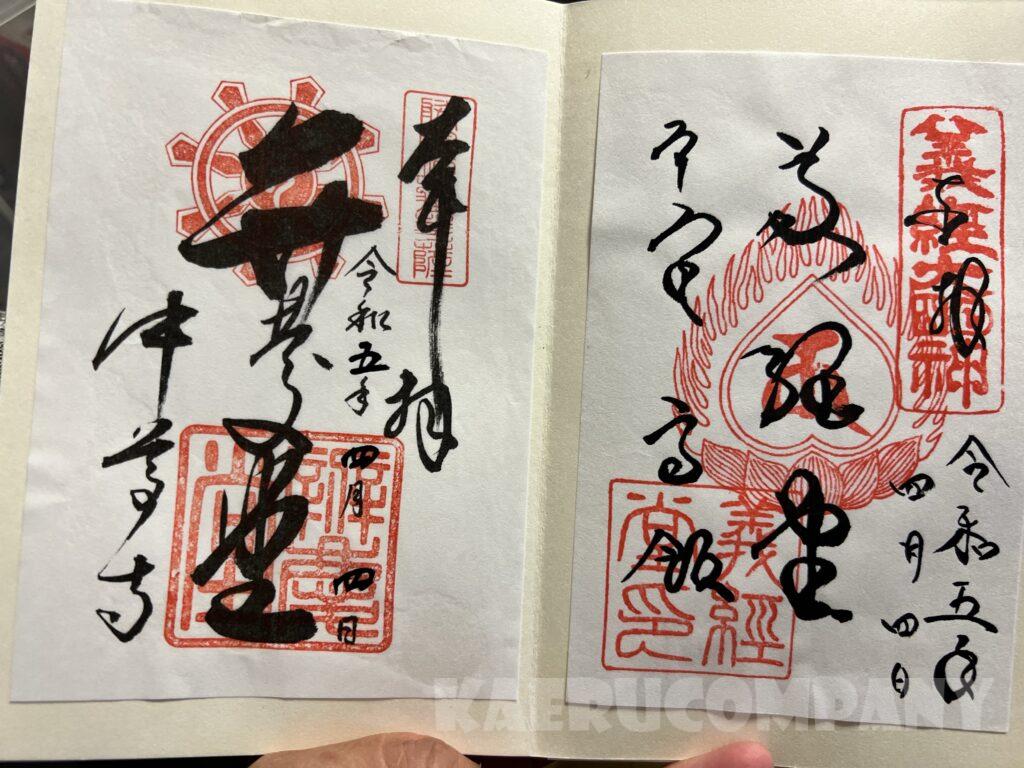 奉拝
令和五年
四月四日
義経堂
義經
堂印
平泉 高館
奉拝
令和五年
四月四日
弁慶堂
中尊寺
KAERUCOMPANY